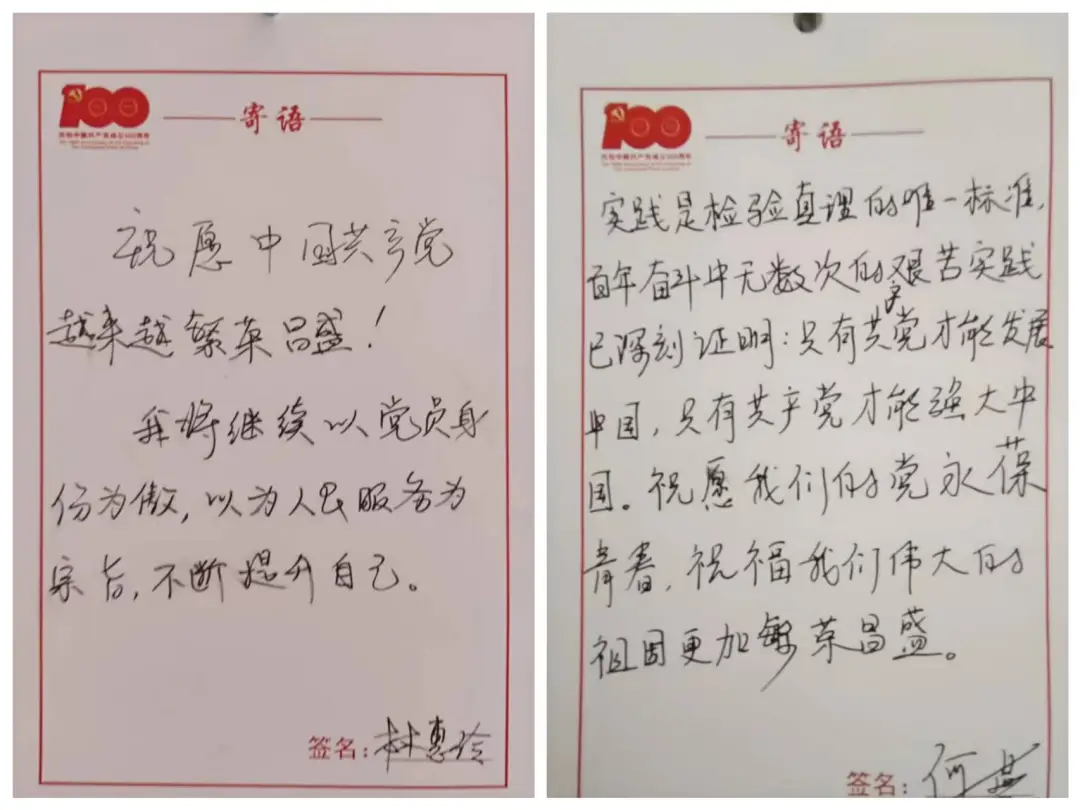 100
庆祝中国共产党成立100周年
The 100th Anniversary of the Founding of
The Communist Party of China
寄语
祝愿中国共产党
越来越繁荣昌盛！
我将继续以党员身
份为傲，以为人民服务为
宗旨，不断提升自己。
签名：林惠玲
100
庆祝中国共产党成立100周年
The 100th Anniversary of the Founding of
The Communist Party of China
寄语
实践是检验真理的唯一标准，
百年奋斗中无数次的艰苦实践
已深刻证明：只有共产党才能发展
中国，只有共产党才能强大中
国。祝愿我们的党永葆
青春，祝福我们伟大的
祖国更加繁荣昌盛。
签名：何